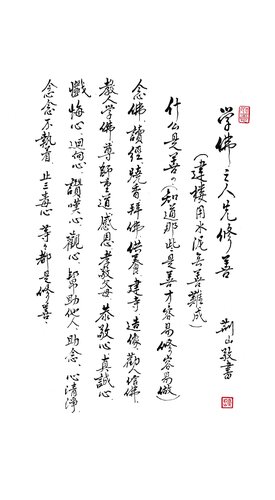 学佛之人先修善
荆山敬書
(建楼用水泥無善難成)
什么是善？(知道那些是善才容易修容易做)
念佛、讀經、燒香、拜佛、供養、建寺、造像、勸人信佛、
教人学佛、尊師重道、感恩、孝敬父母、恭敬心、真誠心、
懺悔心、迴向心、讚嘆心、觀心、幫助他人、助念、心清淨、
念念不執着、止三毒心、等等都是修善。